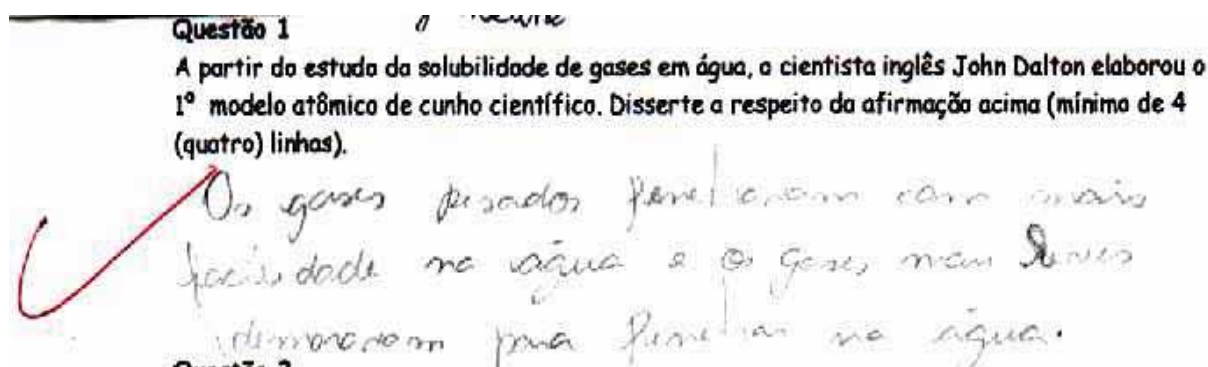 Questão 1
A partir do estudo da solubilidade de gases em água, o cientista inglês John Dalton elaborou o
1º modelo atômico de cunho científico. Disserte a respeito da afirmação acima (mínimo de 4
(quatro) linhas).
Os gases pesados penetraram com mais
facilidade na água e os gases mais leves
demoraram para penetrar na água.